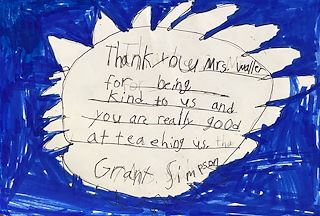 Thank you Mrs. Muller
for being
kind to us and
you are really good
at teaching us. the
Grant Simpson